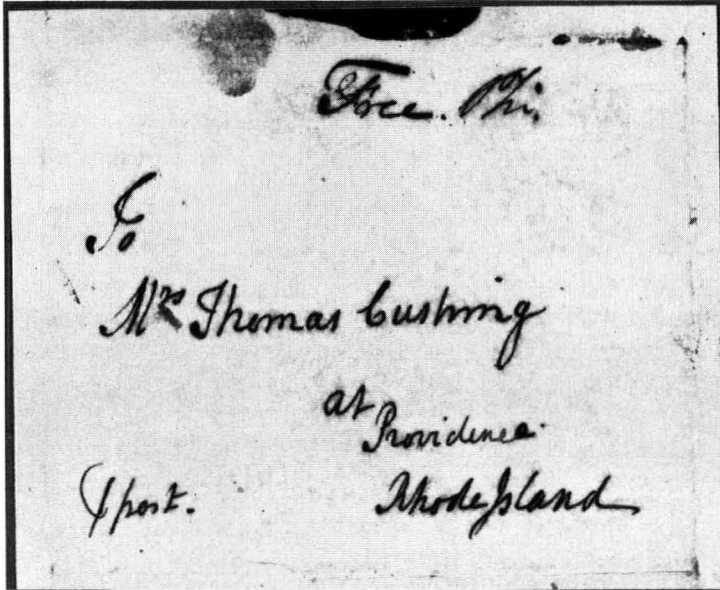 Free. Phi.
To
Mrs Thomas Cushing
at
Providence.
⅌ post.
Rhode Island